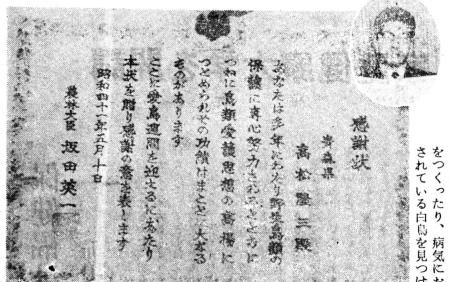 感謝状
青森県
高松隆三殿
あなたは多年にわたり野生鳥類の
保護に専心努力されるとともに
つねに鳥類愛護思想の高揚に
つとめられその功績はまことに大なる
ものがあります
ここに愛鳥週間を迎えるにあたり
本状を贈り感謝の意を表します
昭和四十一年五月十日
農林大臣 坂田英一
をつくったり、病気にお
されている白鳥を見つけ